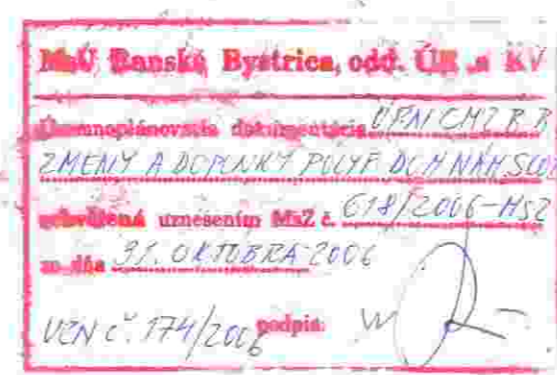 MsÚ Banská Bystrica, odd. ÚR a KV
Územnoplánovacia dokumentácia ÚPN CMZ B.B.
ZMENY A DOPLNKY POLYF. DOM NÁM. SLOB
schválená uznesením MsZ č. 618/2006-MSZ
zo dňa 31. OKTÓBRA 2006
VZN č. 174/2006 podpis: